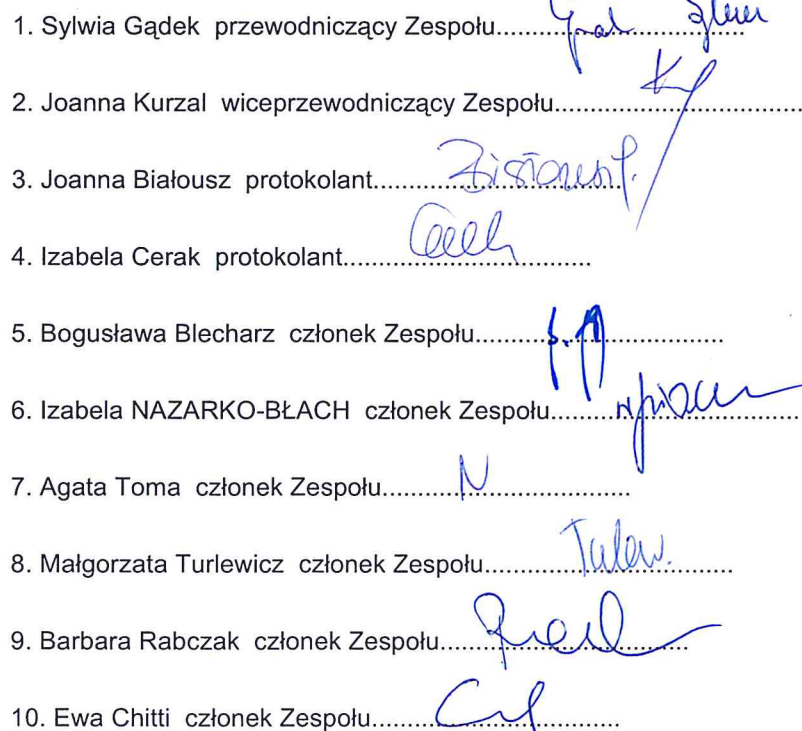 1. Sylwia Gądek przewodniczący Zespołu..............................
2. Joanna Kurzal wiceprzewodniczący Zespołu..............................
3. Joanna Białousz protokolant..............................
4. Izabela Cerak protokolant..............................
5. Bogusława Blecharz członek Zespołu..............................
6. Izabela NAZARKO-BŁACH członek Zespołu..............................
7. Agata Toma członek Zespołu........... N ....................
8. Małgorzata Turlewicz członek Zespołu..............................
9. Barbara Rabczak członek Zespołu..............................
10. Ewa Chitti członek Zespołu..............................